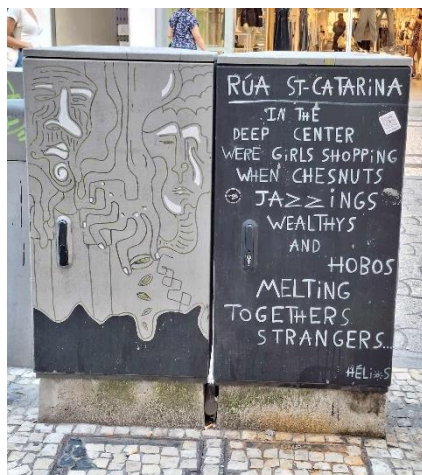 RÚA ST-CATARiNA
iN THE
DEEP CENTER
WERE GiRLS SHOPPiNG
WHEN CHESNUTS
JAZZiNGS
WEALTHYS
AND
HOBOS
MELTiNG
TOGETHERS
STRANGERS...
HÉLi☀S